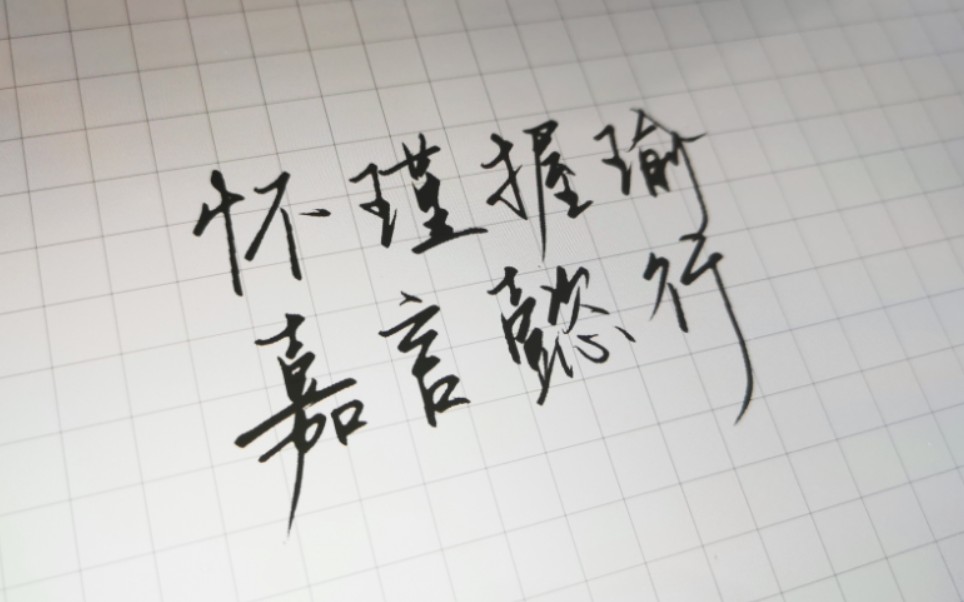 怀瑾握瑜
嘉言懿行